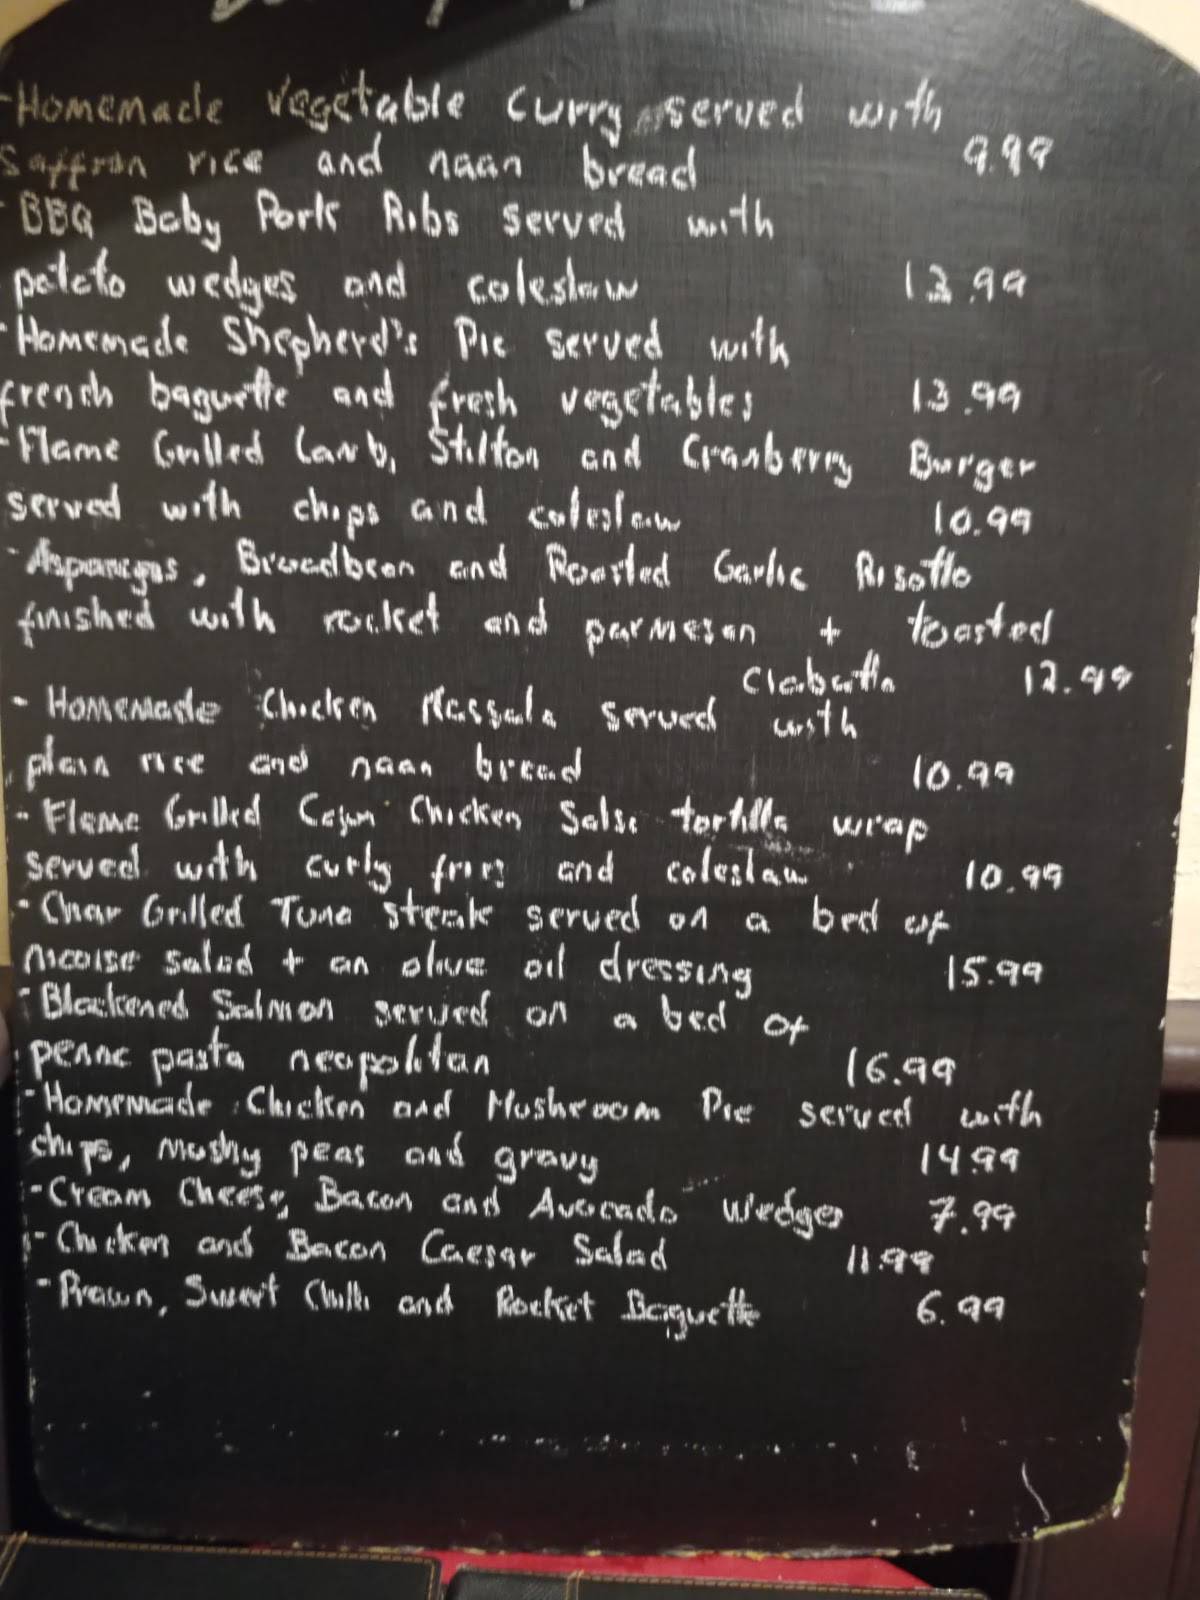 -Homemade vegetable curry served with
saffron rice and naan bread 9.99
-BBQ Baby Pork Ribs served with
potato wedges and coleslaw 13.99
-Homemade Shepherd's Pie served with
french baguette and fresh vegetables 13.99
-Flame Grilled Lamb, Stilton and Cranberry Burger
served with chips and coleslaw 10.99
-Asparagus, Broadbean and Roasted Garlic Risotto
finished with rocket and parmesan + toasted
ciabatta 12.99
-Homemade Chicken Massala served with
plain rice and naan bread 10.99
-Flame Grilled Cajun Chicken Salsa tortilla wrap
served with curly fries and coleslaw 10.99
-Char Grilled Tuna steak served on a bed of
nicoise salad + an olive oil dressing 15.99
-Blackened Salmon served on a bed of
penne pasta neopolitan 16.99
-Homemade Chicken and Mushroom Pie served with
chips, mushy peas and gravy 14.99
-Cream Cheese, Bacon and Avocado Wedges 7.99
-Chicken and Bacon Caesar Salad 11.99
-Prawn, Sweet Chilli and Rocket Baguette 6.99